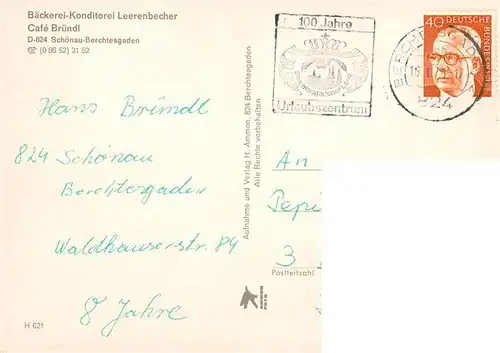 Bäckerei-Konditorei Leerenbecher
Café Bründl
D-824 Schönau-Berchtesgaden
☎ (0 86 52) 31 52
100 Jahre
Urlaubszentrum
40 DEUTSCHE BUNDESPOST
Hans Bründl
824 Schönau
Berchtesgaden
Waldhauserstr. 84
8 Jahre
H 621
Aufnahme und Verlag H. Ammon, 824 Berchtesgaden
Alle Rechte vorbehalten
An
Pepi
3
Postleitzahl